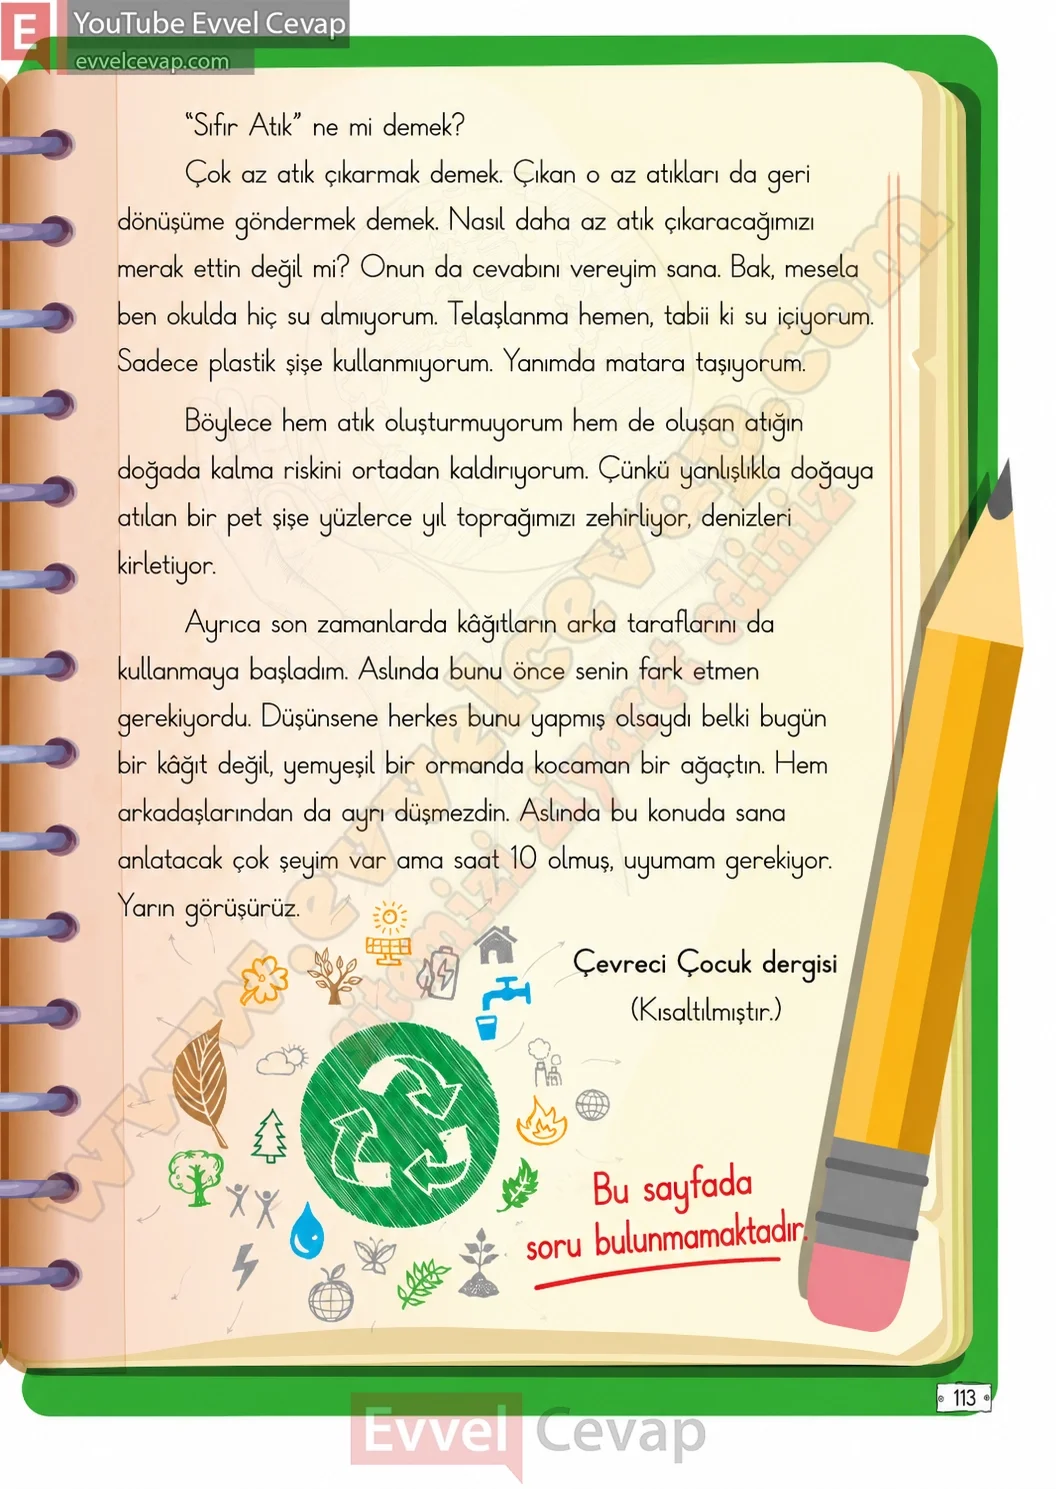 E YouTube Evvel Cevap
evvelcevap.com
“Sıfır Atık” ne mi demek?
Çok az atık çıkarmak demek. Çıkan o az atıkları da geri
dönüşüme göndermek demek. Nasıl daha az atık çıkaracağımızı
merak ettin değil mi? Onun da cevabını vereyim sana. Bak, mesela
ben okulda hiç su almıyorum. Telaşlanma hemen, tabii ki su içiyorum.
Sadece plastik şişe kullanmıyorum. Yanımda matara taşıyorum.
Böylece hem atık oluşturmuyorum hem de oluşan atığın
doğada kalma riskini ortadan kaldırıyorum. Çünkü yanlışlıkla doğaya
atılan bir pet şişe yüzlerce yıl toprağımızı zehirliyor, denizleri
kirletiyor.
Ayrıca son zamanlarda kâğıtların arka taraflarını da
kullanmaya başladım. Aslında bunu önce senin fark etmen
gerekiyordu. Düşünsene herkes bunu yapmış olsaydı belki bugün
bir kâğıt değil, yemyeşil bir ormanda kocaman bir ağaçtın. Hem
arkadaşlarından da ayrı düşmezdin. Aslında bu konuda sana
anlatacak çok şeyim var ama saat 10 olmuş, uyumam gerekiyor.
Yarın görüşürüz.
Çevreci Çocuk dergisi
(Kısaltılmıştır.)
www.evvelcevap.com
sitemizi ziyaret ediniz
Bu sayfada
soru bulunmamaktadır.
113
Evvel Cevap